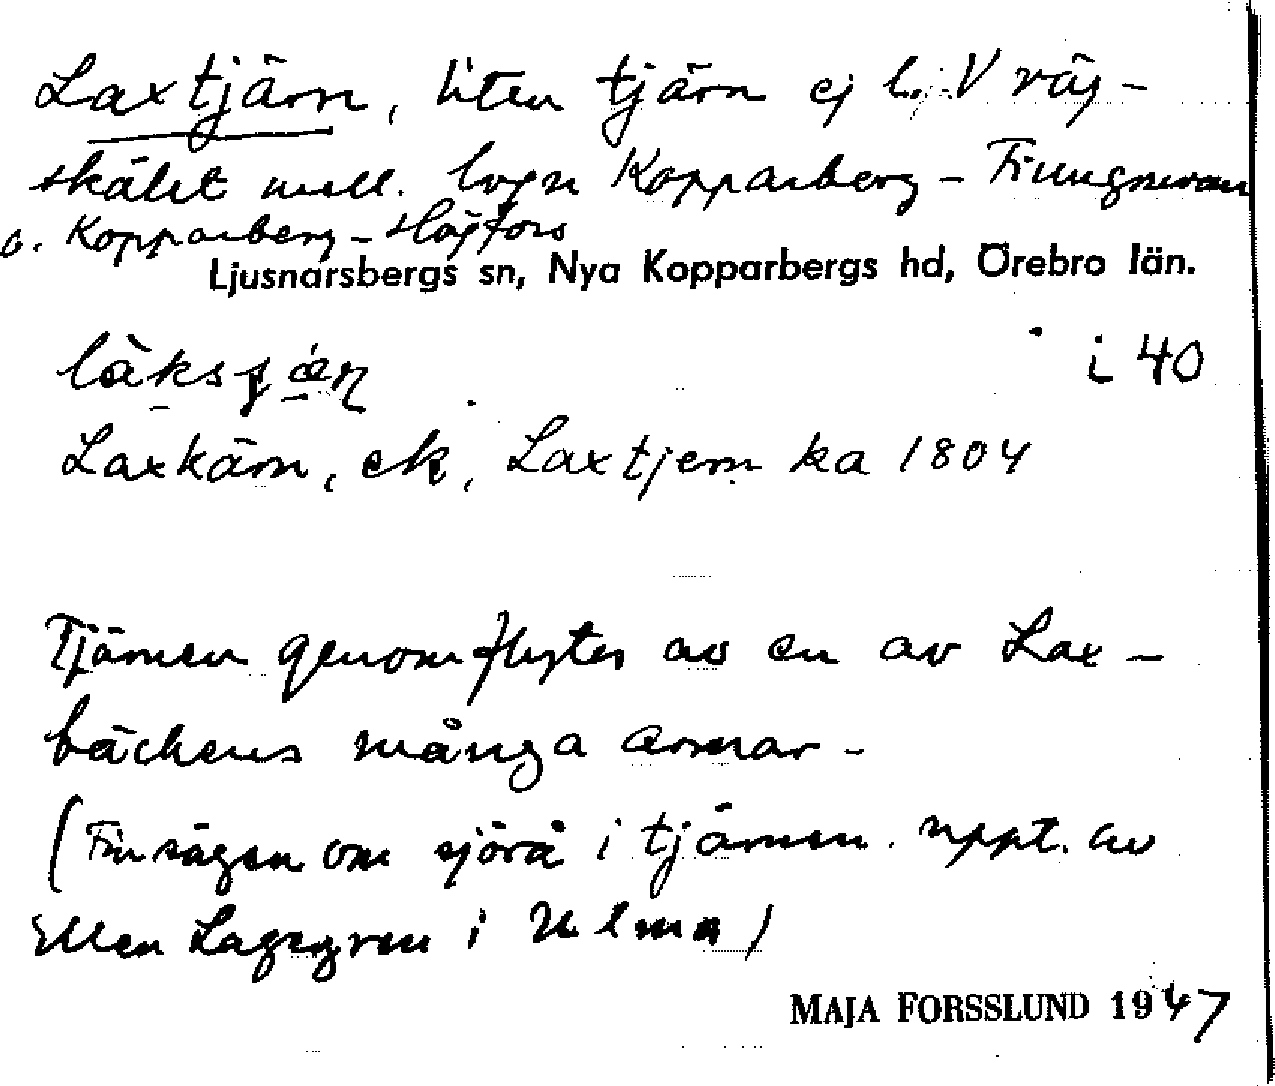 Laxtjärn, liten tjärn ej l. V väg-
skälet mell. lvgn Kopparberg - 
o. Kopparberg - Högfors
Ljusnarsbergs sn, Nya Kopparbergs hd, Örebro län.
i 40
Laxkärn, ek, Laxtjern ka 1804
Tjärnen genomflytes av en av Lax-
bäckens många armar -
(Fin sägen om sjörå i tjärnen. uppt. av
Ellen Lagergren i Ulma)
MAJA FORSSLUND 1947